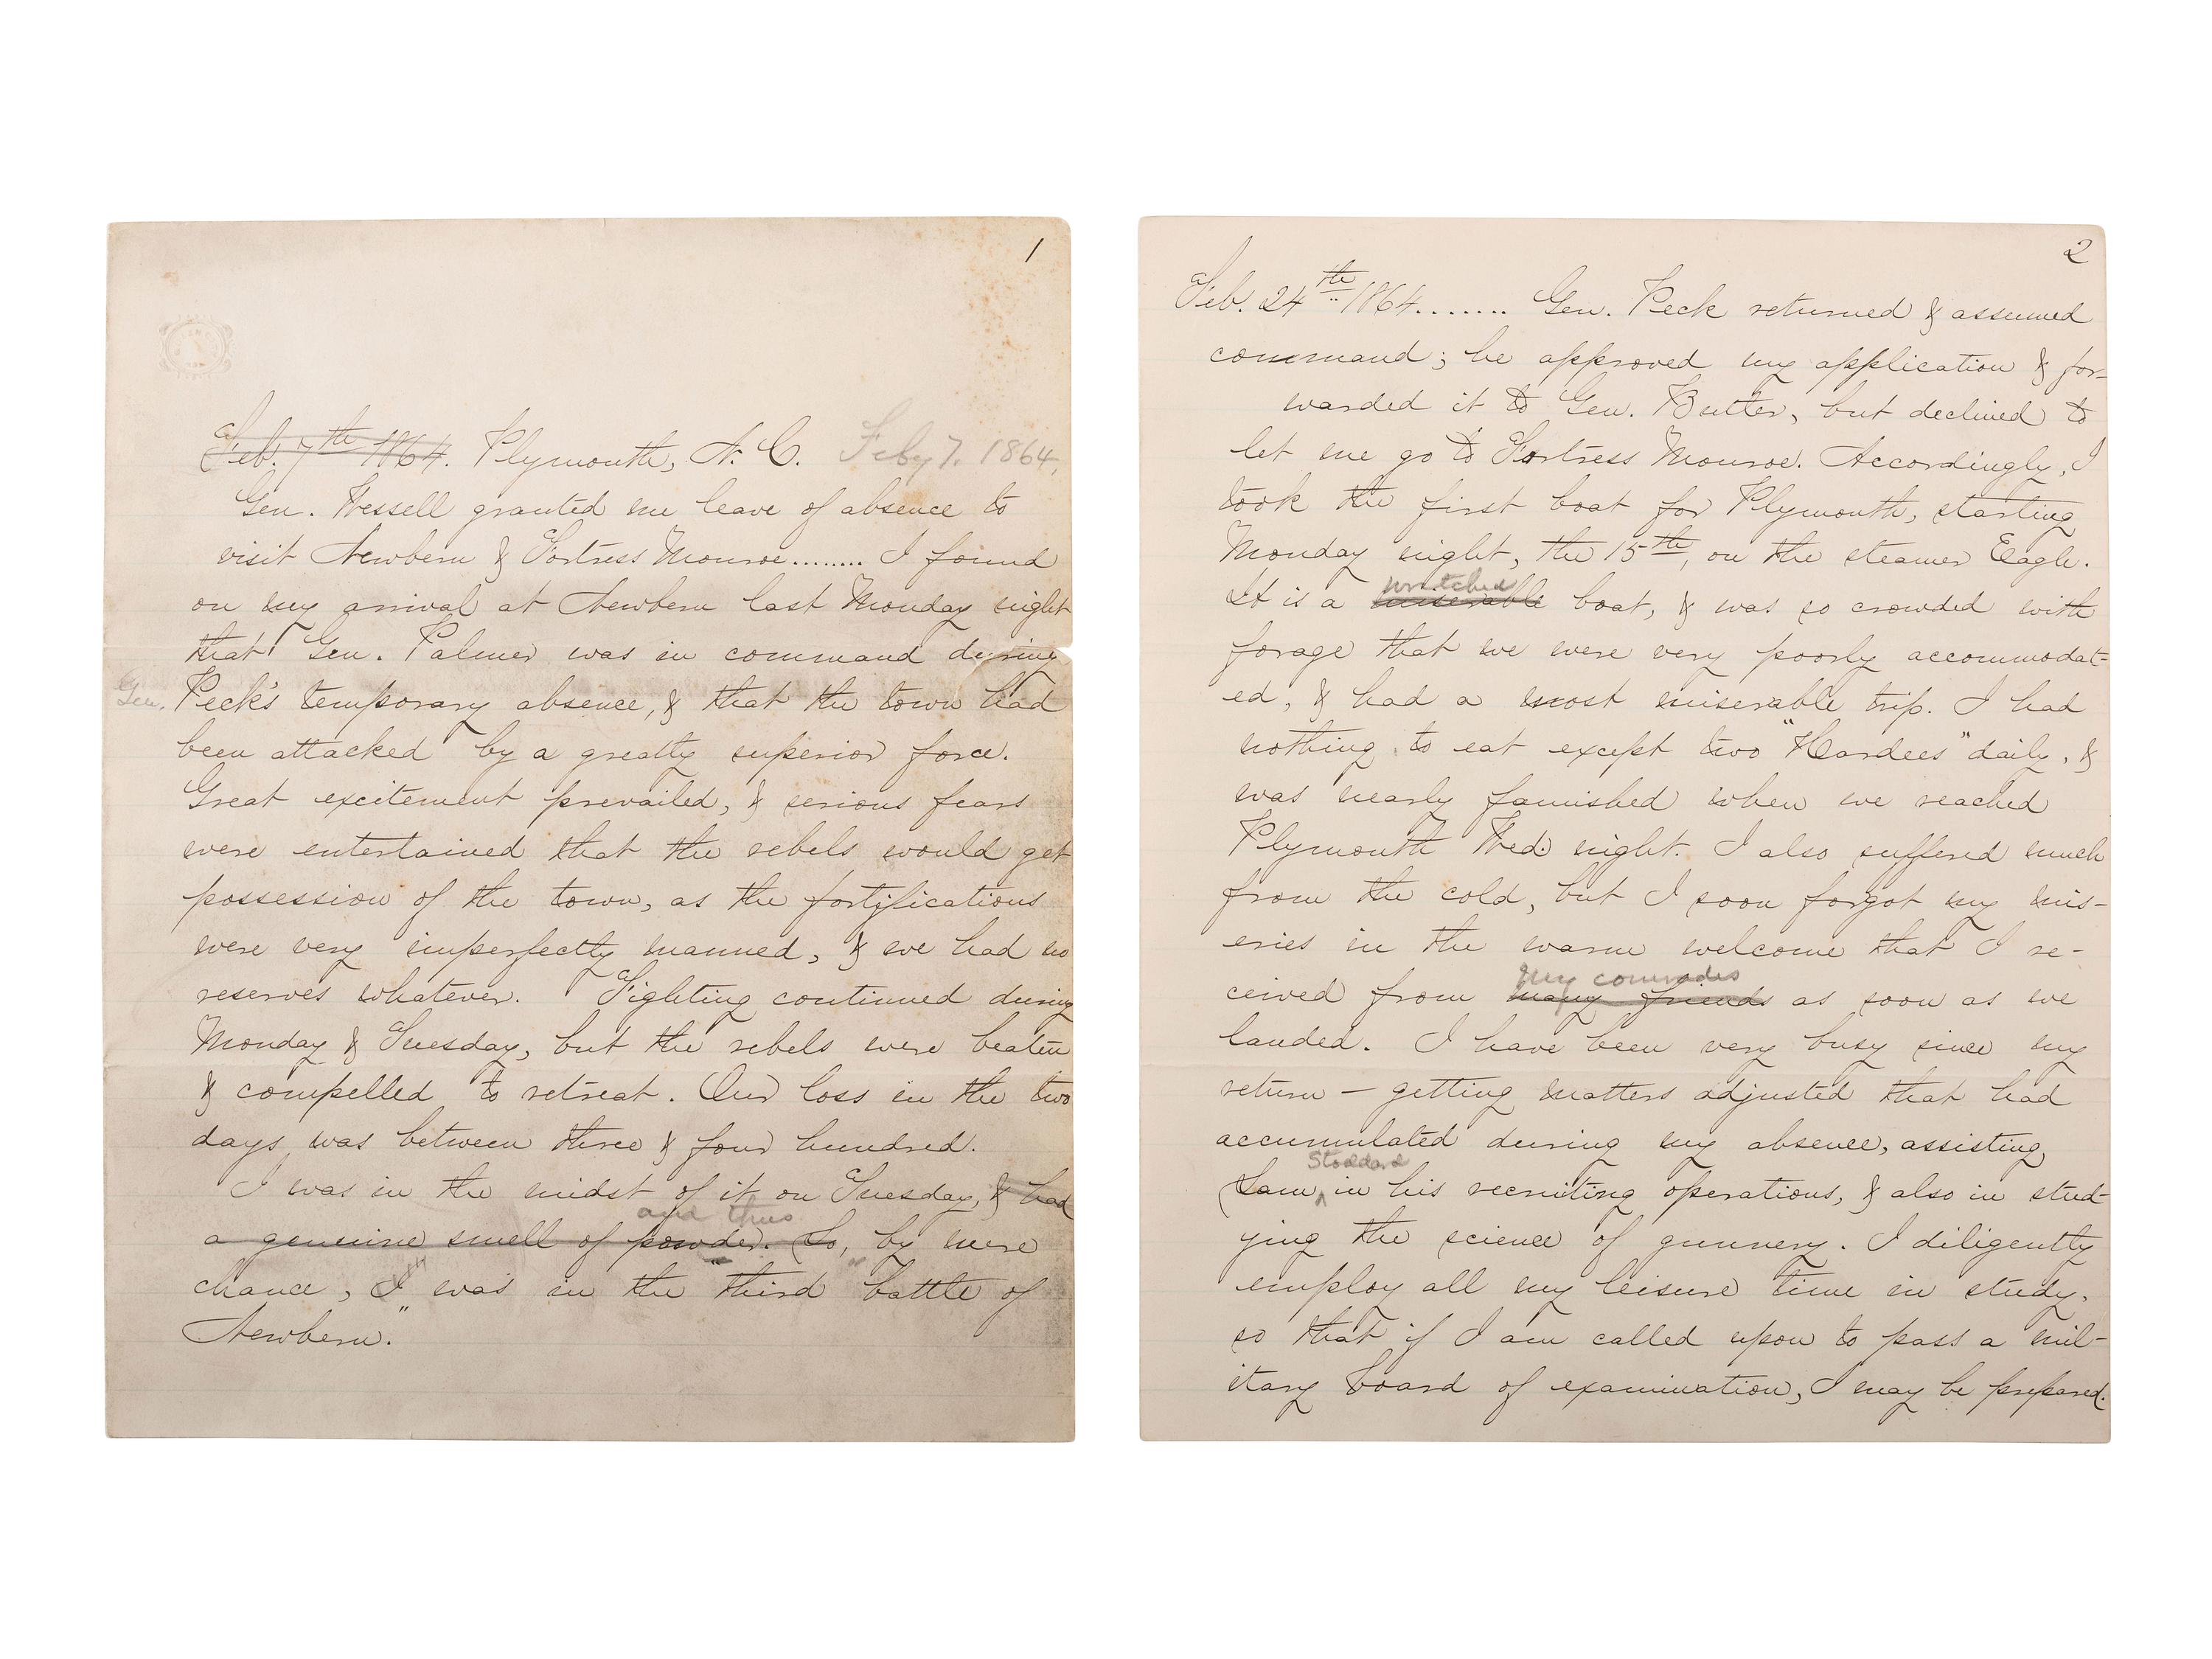 1
Feb. 7th 1864. Plymouth, N. C. Feby 7. 1864,
Gen. Wessell granted me leave of absence to
visit Newbern & Fortress Monroe........ I found
on my arrival at Newbern last Monday night
that Gen. Palmer was in command during
Gen. Peck's temporary absence, & that the town had
been attacked by a greatly superior force.
Great excitement prevailed, & serious fears
were entertained that the rebels would get
possession of the town, as the fortifications
were very imperfectly manned, & we had no
reserves whatever. Fighting continued during
Monday & Tuesday, but the rebels were beaten
& compelled to retreat. Our loss in the two
days was between three & four hundred.
I was in the midst of it on Tuesday, & had
and thus
a genuine smell of powder. So, by mere
chance, I was in the "third" battle of
Newbern."
2
Feb. 24th 1864........ Gen. Peck returned & assumed
command; he approved my application & for-
warded it to Gen. Butler, but declined to
let me go to Fortress Monroe. Accordingly, I
took the first boat for Plymouth, starting
Monday night, the 15th, on the steamer Eagle.
wretched
It is a miserable boat, & was so crowded with
forage that we were very poorly accommodat-
ed, & had a most miserable trip. I had
nothing to eat except two "Hardees" daily, &
was nearly famished when we reached
Plymouth Wed. night. I also suffered much
from the cold, but I soon forgot my mis-
eries in the warm welcome that I re-
my comrades
ceived from many friends as soon as we
landed. I have been very busy since my
return – getting matters adjusted that had
accumulated during my absence, assisting
Stoddard
Sam, in his recruiting operations, & also in stud-
ying the science of gunnery. I diligently
employ all my leisure time in study,
so that if I am called upon to pass a mil-
itary board of examination, I may be prepared.